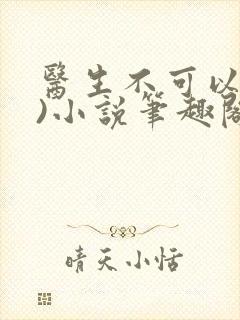 醫生不可以
)小說筆趣閣
晴天小恬